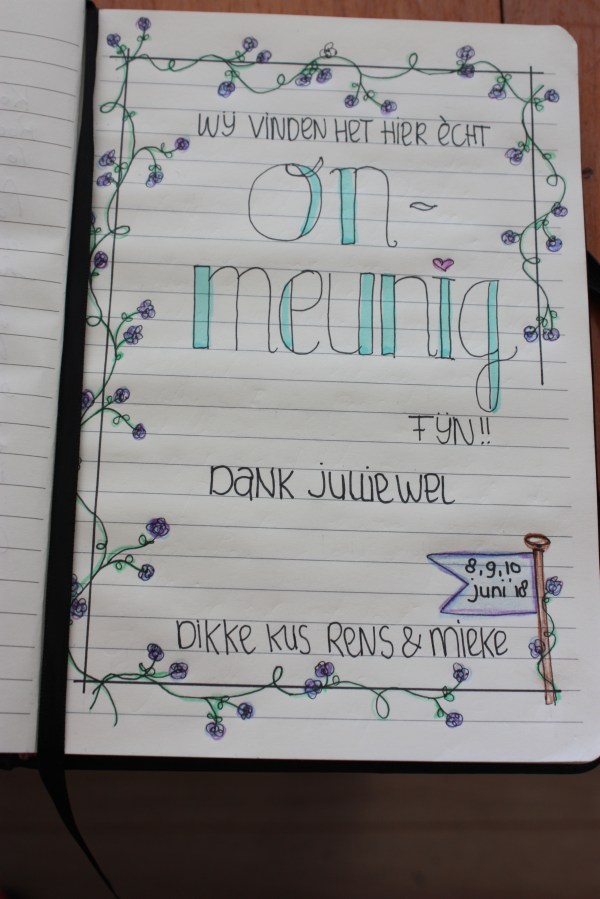 WIJ VINDEN HET HIER ÈCHT
on-
meunig
FIJN!!
DANK JULLIE WEL
8, 9, 10
juni '18
DIKKE KUS RENS & MIEKE